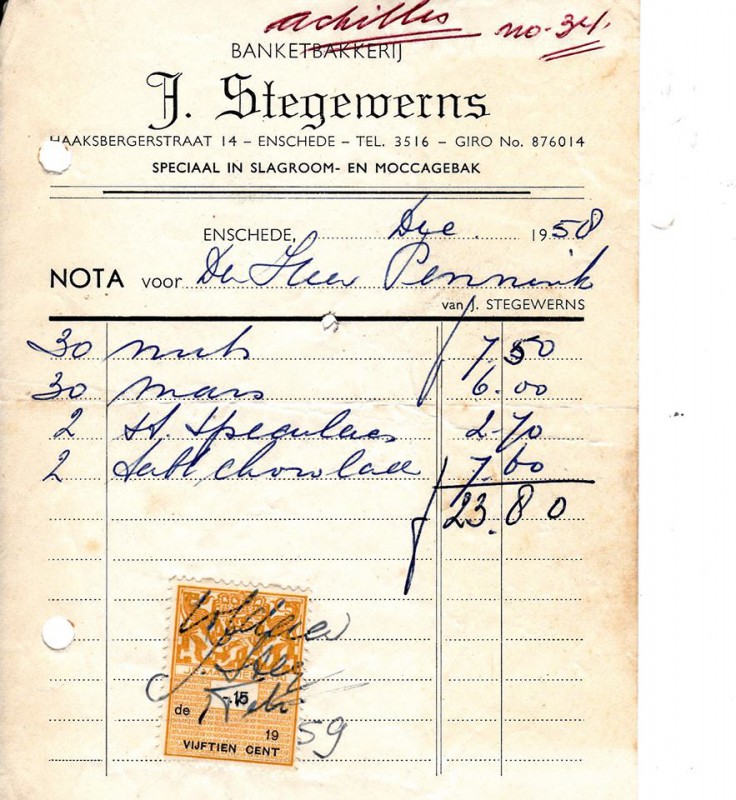 Achilles no. 34.
BANKETBAKKERIJ
J. Stegewerns
HAAKSBERGERSTRAAT 14 – ENSCHEDE – TEL. 3516 – GIRO No. 876014
SPECIAAL IN SLAGROOM- EN MOCCAGEBAK
ENSCHEDE, 1958
NOTA voor De Heer Pennink
van J. STEGEWERNS
30 nuts 7.50
30 mars 6.00
2 st. speculaas 2.70
2 tabl chocolade 7.60
23.80
Voldaan
J. Steg
-.15
de
1959
VIJFTIEN CENT